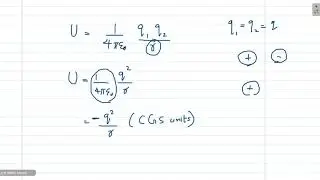 U = 1/4πε₀ q₁ q₂/r
q₁ = q₂ = q
+ -
U = 1/4πε₀ q²/r
+
= -q²/r (CGS units)